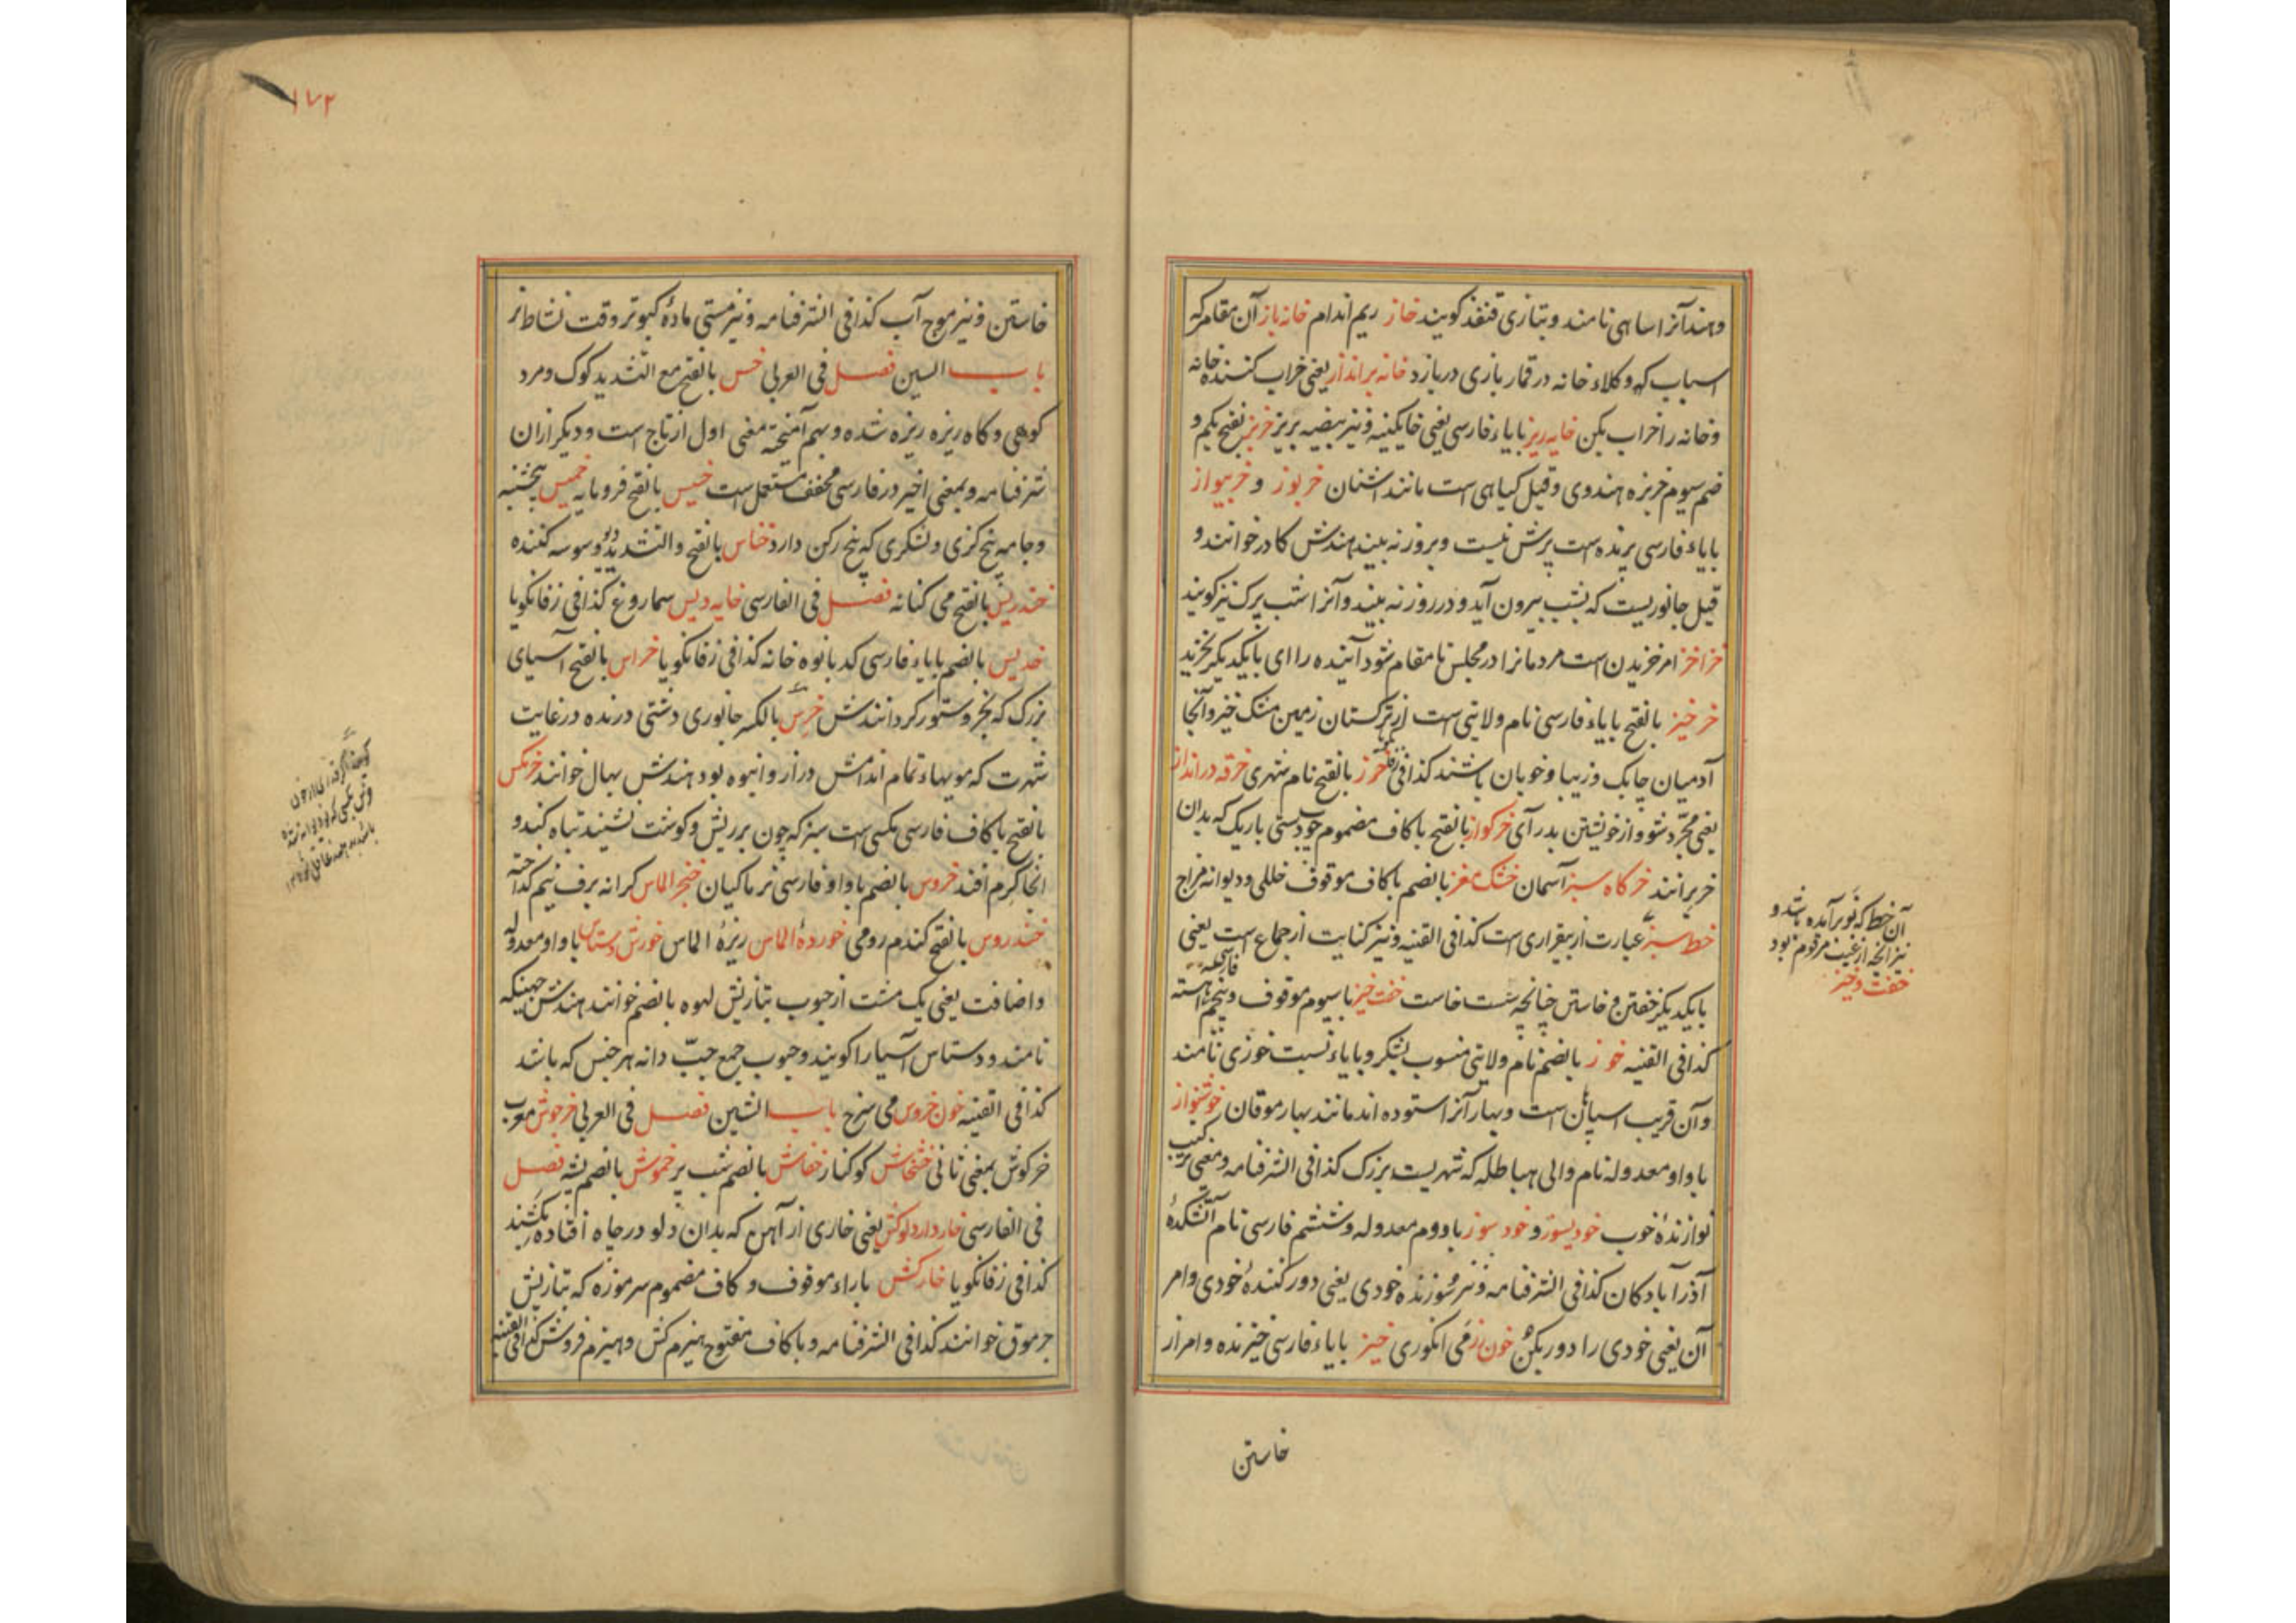 وهند آنرا ساهی نامند و بتازی قنفذ گویند خاز ریم اندام خانه باز آن مقامر که
اسباب که وکلاء خانه در قمار بازی دربازد خانه برانداز یعنی خراب کننده خانه
و خانه را خراب بکن خایه ریز بایاء فارسی یعنی خاکینه و نیز بیضه بریز خربز بفتح یکم و
ضم سیوم خربزه هندوی و قیل گیاهی است مانند اشنان خربوز و خربیواز
بایاء فارسی پرنده است پرش نیست و بروز نه بیند هندش کادر خوانند و
قیل جانوریست که بشب بیرون آید و در روز نه بیند و آنرا شب پرک نیز گویند
خزاخز امر خزیدن است مردمانرا در مجلس تا مقام شود آینده را ای با یکدیگر بخزید
خرخیز بالفتح بایاء فارسی نام ولایتی است از ترکستان زمین مشک خیز و آنجا
آدمیان چابک و زیبا و خوبان باشند کذا فی خرز بالفتح نام شهری خرقه درانداز
یعنی مجرد شو و از خویشتن بدر آی خرکواز بالفتح باکاف مضموم چوب دستی باریک که بدان
خر برانند خرکاه سبز آسمان خشک مغز بالضم باکاف موقوف خللی و دیوانه مزاج
خط سبز عبارت از بیقراری است کذا فی القنیه و نیز کنایت از جماع است یعنی
با یکدیگر خفتن و خاستن چنانچه شست خاست خفت خیز با سیوم موقوف و پنجم فارسی
کذا فی القنیه خوز بالضم نام ولایتی منسوب بشکر و بایاء نسبت خوزی نامند
و آن قریب سپاهان است و بهار آنرا ستوده اند مانند بهار موقان خوشنواز
باواو معدوله نام والی هیاطله که شهریست بزرک کذا فی الشرفنامه و معنی ترکیب
نوازندهٔ خوب خودیسوز و خود سوز با دوم معدوله و ششم فارسی نام آتشکدهٔ
آذرآبادکان کذا فی الشرفنامه و نیز سوزنده خودی یعنی دور کنندهٔ خودی و امر
آن یعنی خودی را دور بکن خون رز می انکوری خیز بایاء فارسی خیزنده و امر از
خاستن
آن خط که نو برآمده باشد و
نیز آنچه از غیب مرقوم بود
خفت و خیز
۱۷۲
خاستن و نیز موج آب کذا فی الشرفنامه و نیز مستی مادهٔ کبوتر وقت نشاط نر
باب السین فصل فی العربی خس بالفتح مع التشدید کوک و مرد
کوهی و کاه ریزه ریزه شده و بهم آمیخته معنی اول از تاج است و دیگر از ان
شرفنامه و بمعنی اخیر در فارسی مخفف مستعمل است خسیس بالفتح فرومایه خمیس پنجشنبه
و جامه پنج گزی و لشکری که پنج رکن دارد خناس بالفتح و التشدید دیو وسوسه کننده
خندریس بالفتح می کهنه فصل فی الفارسی خایه دیس سماروغ کذا فی زفانکویا
خدیس بالضم بایاء فارسی کدبانوه خانه کذا فی زفانکویا خراس بالفتح آسیای
بزرک که بخر و ستور گردانندش خرس بالکسر جانوری دشتی درنده در غایت
شهرت که مویهاء تمام اندامش دراز و انبوه بود هندش بهال خوانند خرمکس
بالفتح باکاف فارسی مکسی است سبز که چون بر ریش و گوشت نشیند تباه کند و
آنجا کرم افتد خروس بالضم باواو فارسی نر ماکیان خنجر الماس کرانه برف نیم کداخته
خندروس بالفتح کندم رومی خوردهٔ الماس ریزهٔ الماس خورش دستاس باواو معدوله
و اضافت یعنی یک مشت از حبوب بتازیش لهوه بالضم خوانند هندش جهینکه
نامند و دستاس آسیا را گویند و حبوب جمع حبّ دانه هر جنس که باشد
کذا فی القنیه خون خروس می سرخ باب الشین فصل فی العربی خرخوش معرب
خرکوش بمعنی ثانی خشخاش کوکنار خفاش بالضم شب پر خموش بالضم پشه فصل
فی الفارسی خار دار دلوکش یعنی خاری از آهن که بدان دلو در چاه افتاده بکشند
کذا فی زفانکویا خارکش باراء موقوف و کاف مضموم سرموزه که بتازیش
جرموق خوانند کذا فی الشرفنامه و باکاف مفتوح هیزم کش و هیزم فروش کذا فی القنیه